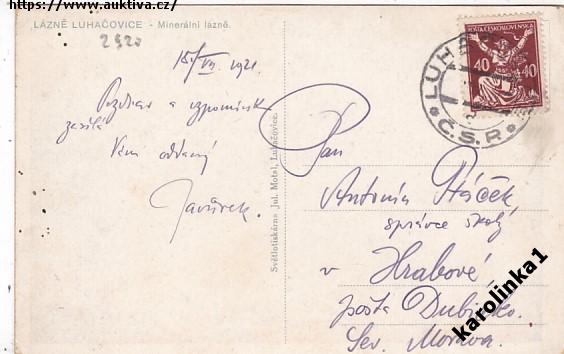 https://www.auktiva.cz/
LÁZNĚ LUHAČOVICE - Minerální lázně.
2920
15/VII. 1921.
Pozdrav a vzpomínk
zasílá
Vám oddaný
Javůrek.
Světlotiskárna Jul. Motal, Luhačovice.
POŠTA ČESKOSLOVENSKÁ
40 40
LUH
Č.S.R.
Pan
Antonín Ptáček,
správce školy
v Hrabové
pošta Dubicko.
Sev. Morava.
karolinka1